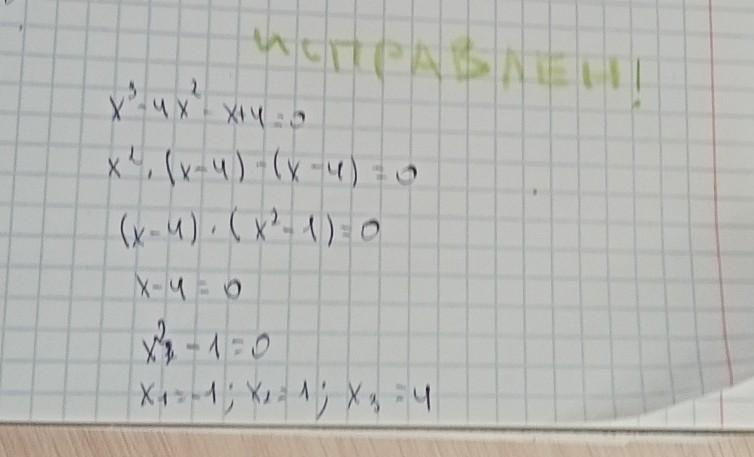 ИСПРАВЛЕН!
x³ - 4x² - x + 4 = 0
x² · (x - 4) - (x - 4) = 0
(x - 4) · (x² - 1) = 0
x - 4 = 0
x² - 1 = 0
x₁ = -1; x₂ = 1; x₃ = 4